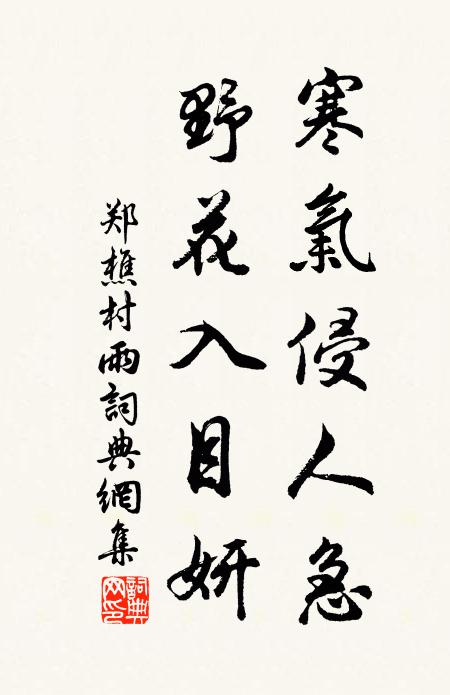 寒氣侵人急
野花入目妍
郑樵村雨詞典網集
詞典